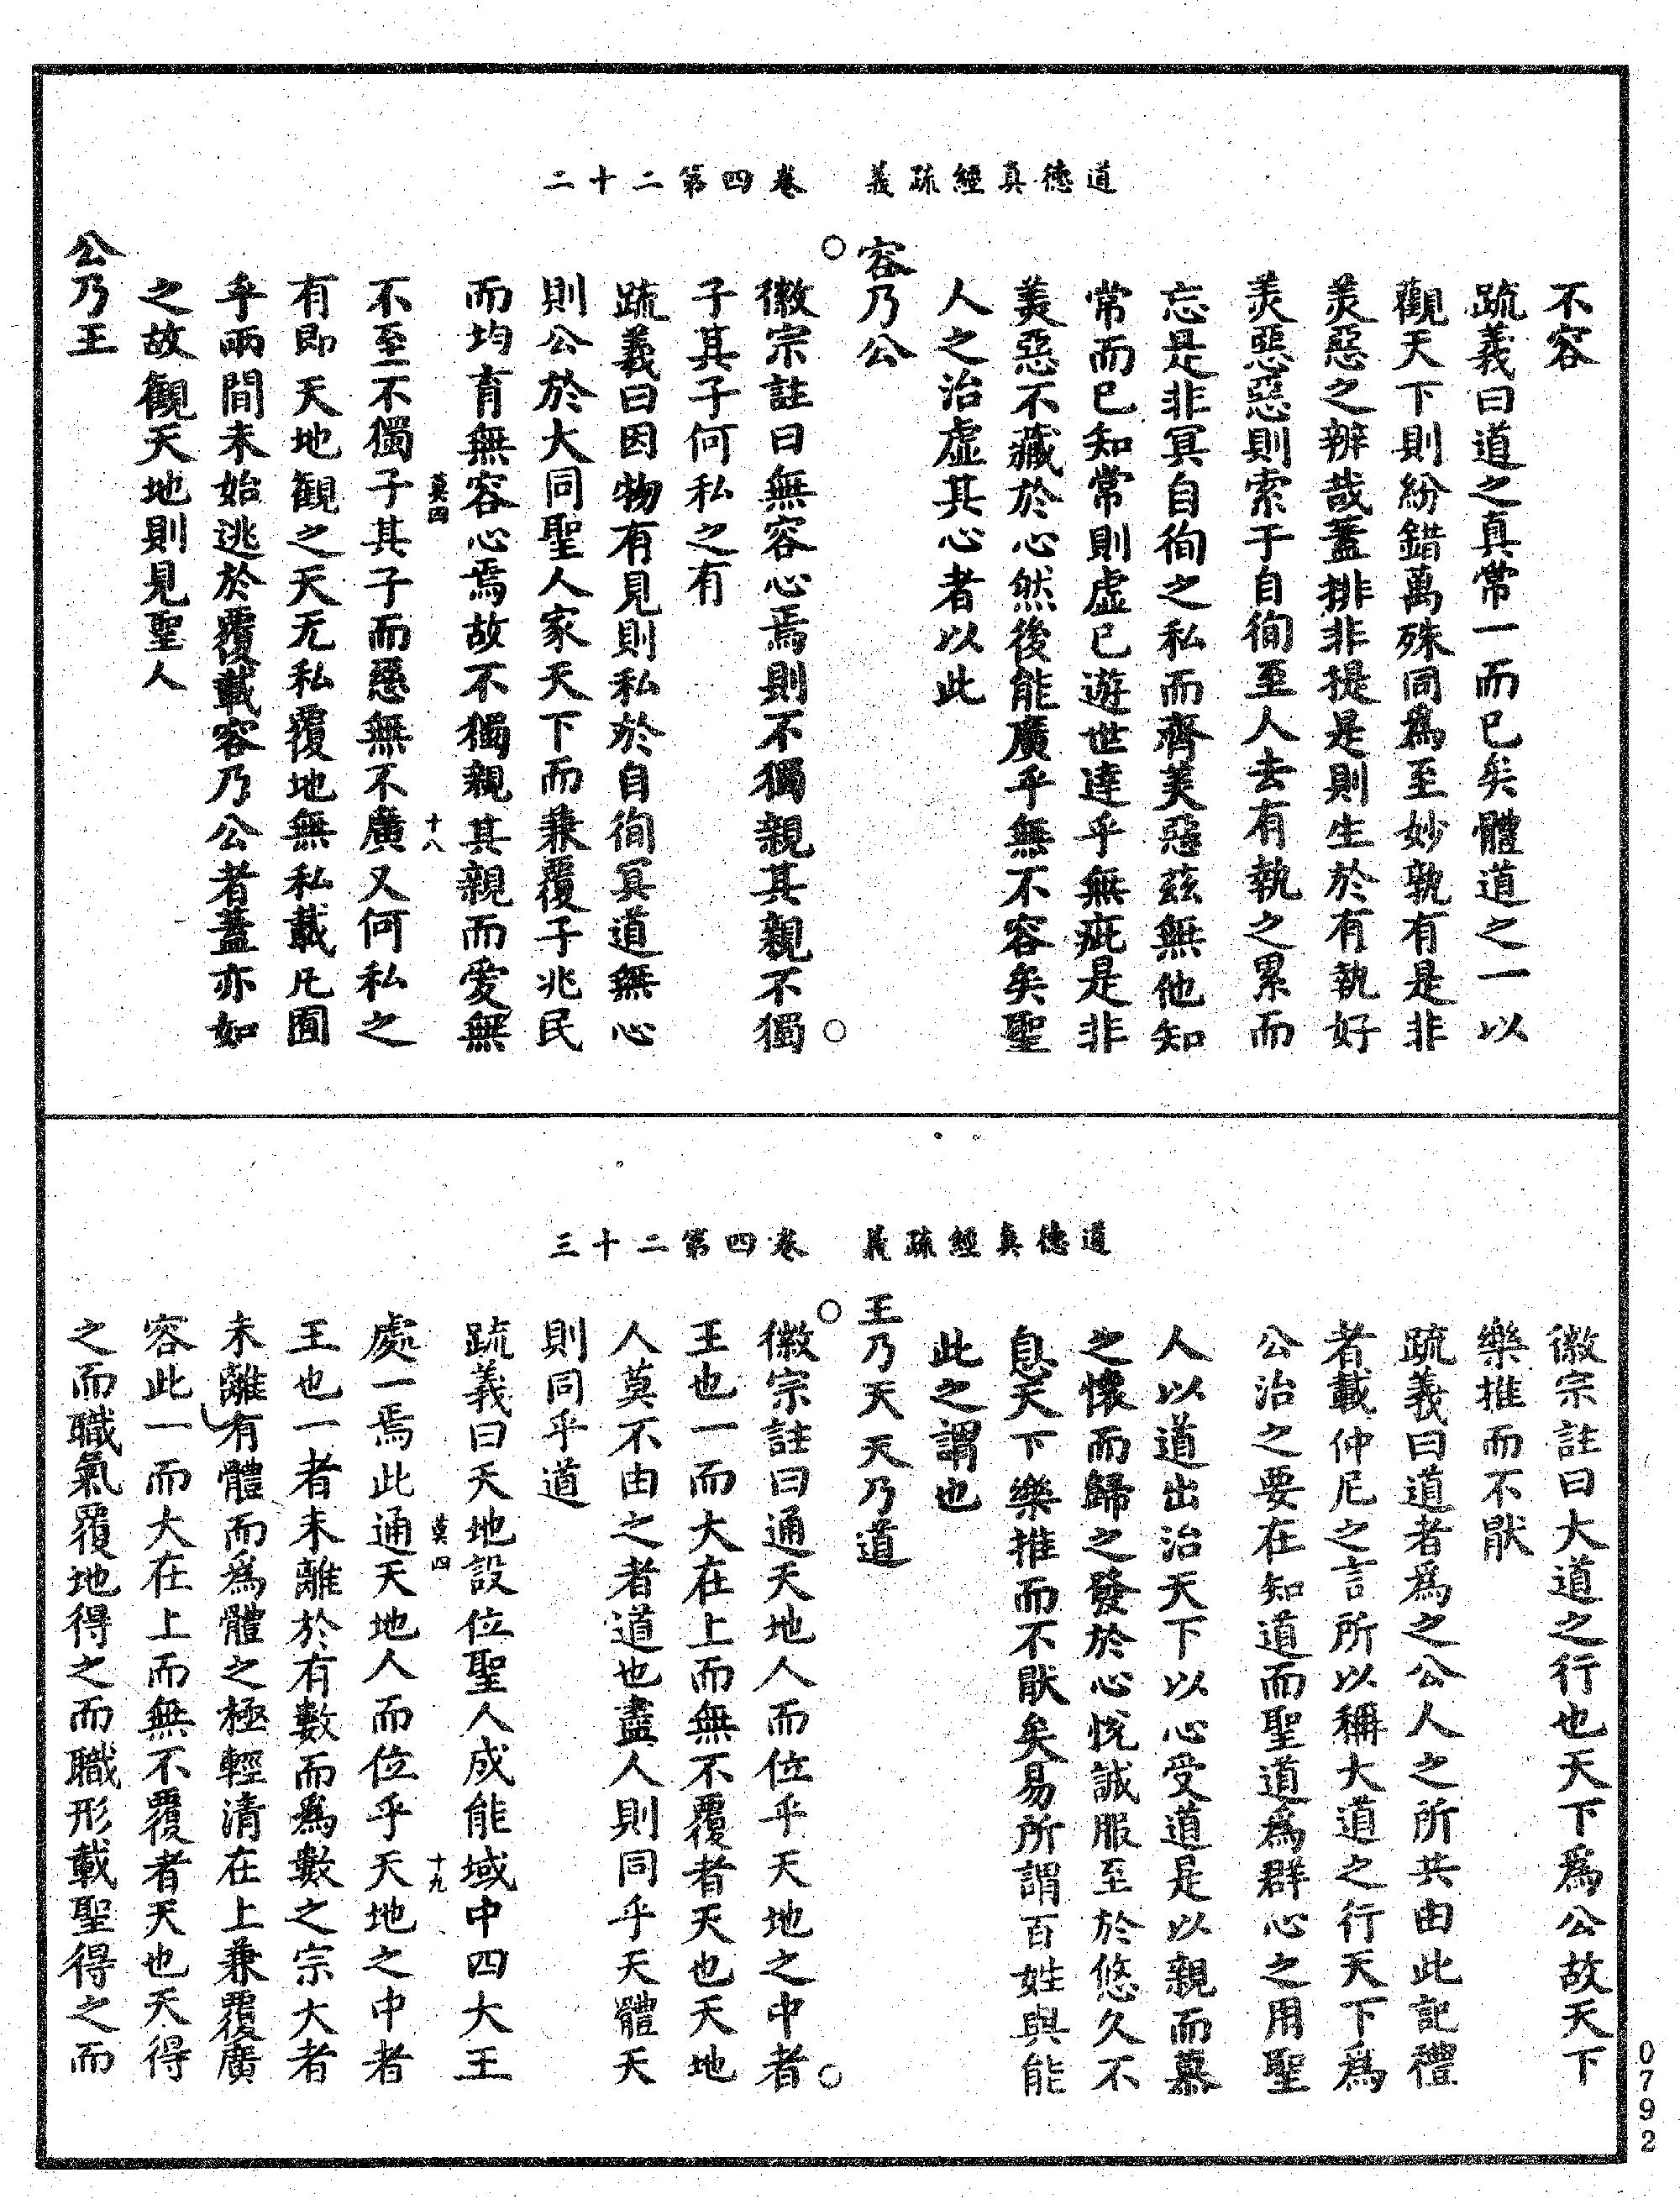 道德真經疏義　卷四第二十二
不容
疏義曰道之真常一而已矣體道之一以
觀天下則紛錯萬殊同爲至妙孰有是非
羙惡之辨哉蓋排非提是則生於有執好
羙惡惡則索于自徇至人去有執之累而
忘是非冥自徇之私而齊美惡茲無他知
常而已知常則虛已遊世達乎無疵是非
美惡不藏於心然後能廣乎無不容矣聖
人之治虛其心者以此
容乃公
○徽宗註曰無容心焉則不獨親其親不獨○
子其子何私之有
疏義曰因物有見則私於自徇冥道無心
則公於大同聖人家天下而兼覆子兆民
而均育無容心焉故不獨親其親而愛無
莫四　十八
不至不獨子其子而慈無不廣又何私之
有即天地觀之天无私覆地無私載凡囿
乎兩間未始逃於覆載容乃公者蓋亦如
之故觀天地則見聖人
公乃王
道德真經疏義　卷四第二十三
徽宗註曰大道之行也天下爲公故天下
樂推而不猒
疏義曰道者爲之公人之所共由此記禮
者載仲尼之言所以稱大道之行天下爲
公治之要在知道而聖道爲群心之用聖
人以道出治天下以心受道是以親而慕
之懷而歸之發於心悅誠服至於悠久不
息天下樂推而不猒矣易所謂百姓與能
此之謂也
王乃天天乃道
○徽宗註曰通天地人而位乎天地之中者○
王也一而大在上而無不覆者天也天地
人莫不由之者道也盡人則同乎天體天
則同乎道
疏義曰天地設位聖人成能域中四大王
莫四　十九
處一焉此通天地人而位乎天地之中者
王也一者未離於有數而爲數之宗大者
未離有體而爲體之極輕清在上兼覆廣
容此一而大在上而無不覆者天也天得
之而職氣覆地得之而職形載聖得之而
0792